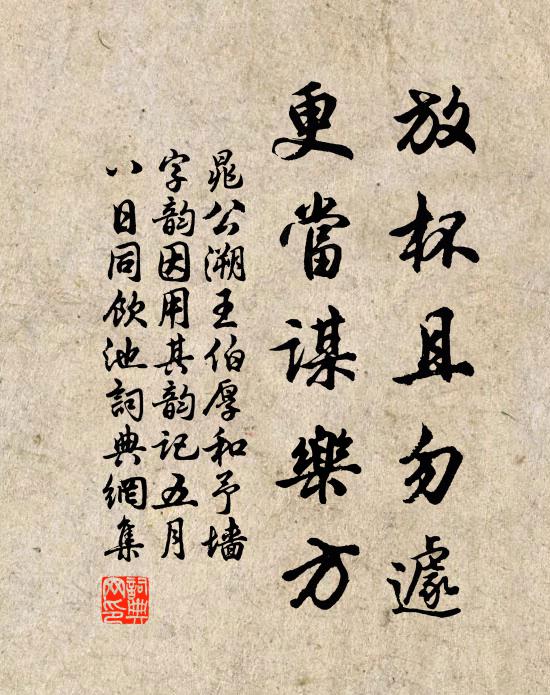 放杯且勿遽
更當謀樂方
晁公溯王伯厚和予墙
字韵因用其韵记五月
八日同飲池詞典網集
詞典
网印